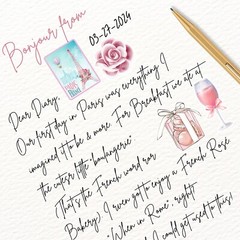 Bonjour from
03-27-2024
Dear Diary,
Our first day in Paris was everything I
imagined it to be & more. For Breakfast we ate at
the cutest little "boulangerie"
That's the French word for
Bakery. I even got to enjoy a French Rosé
"When in Rome", right?
I could get used to this!